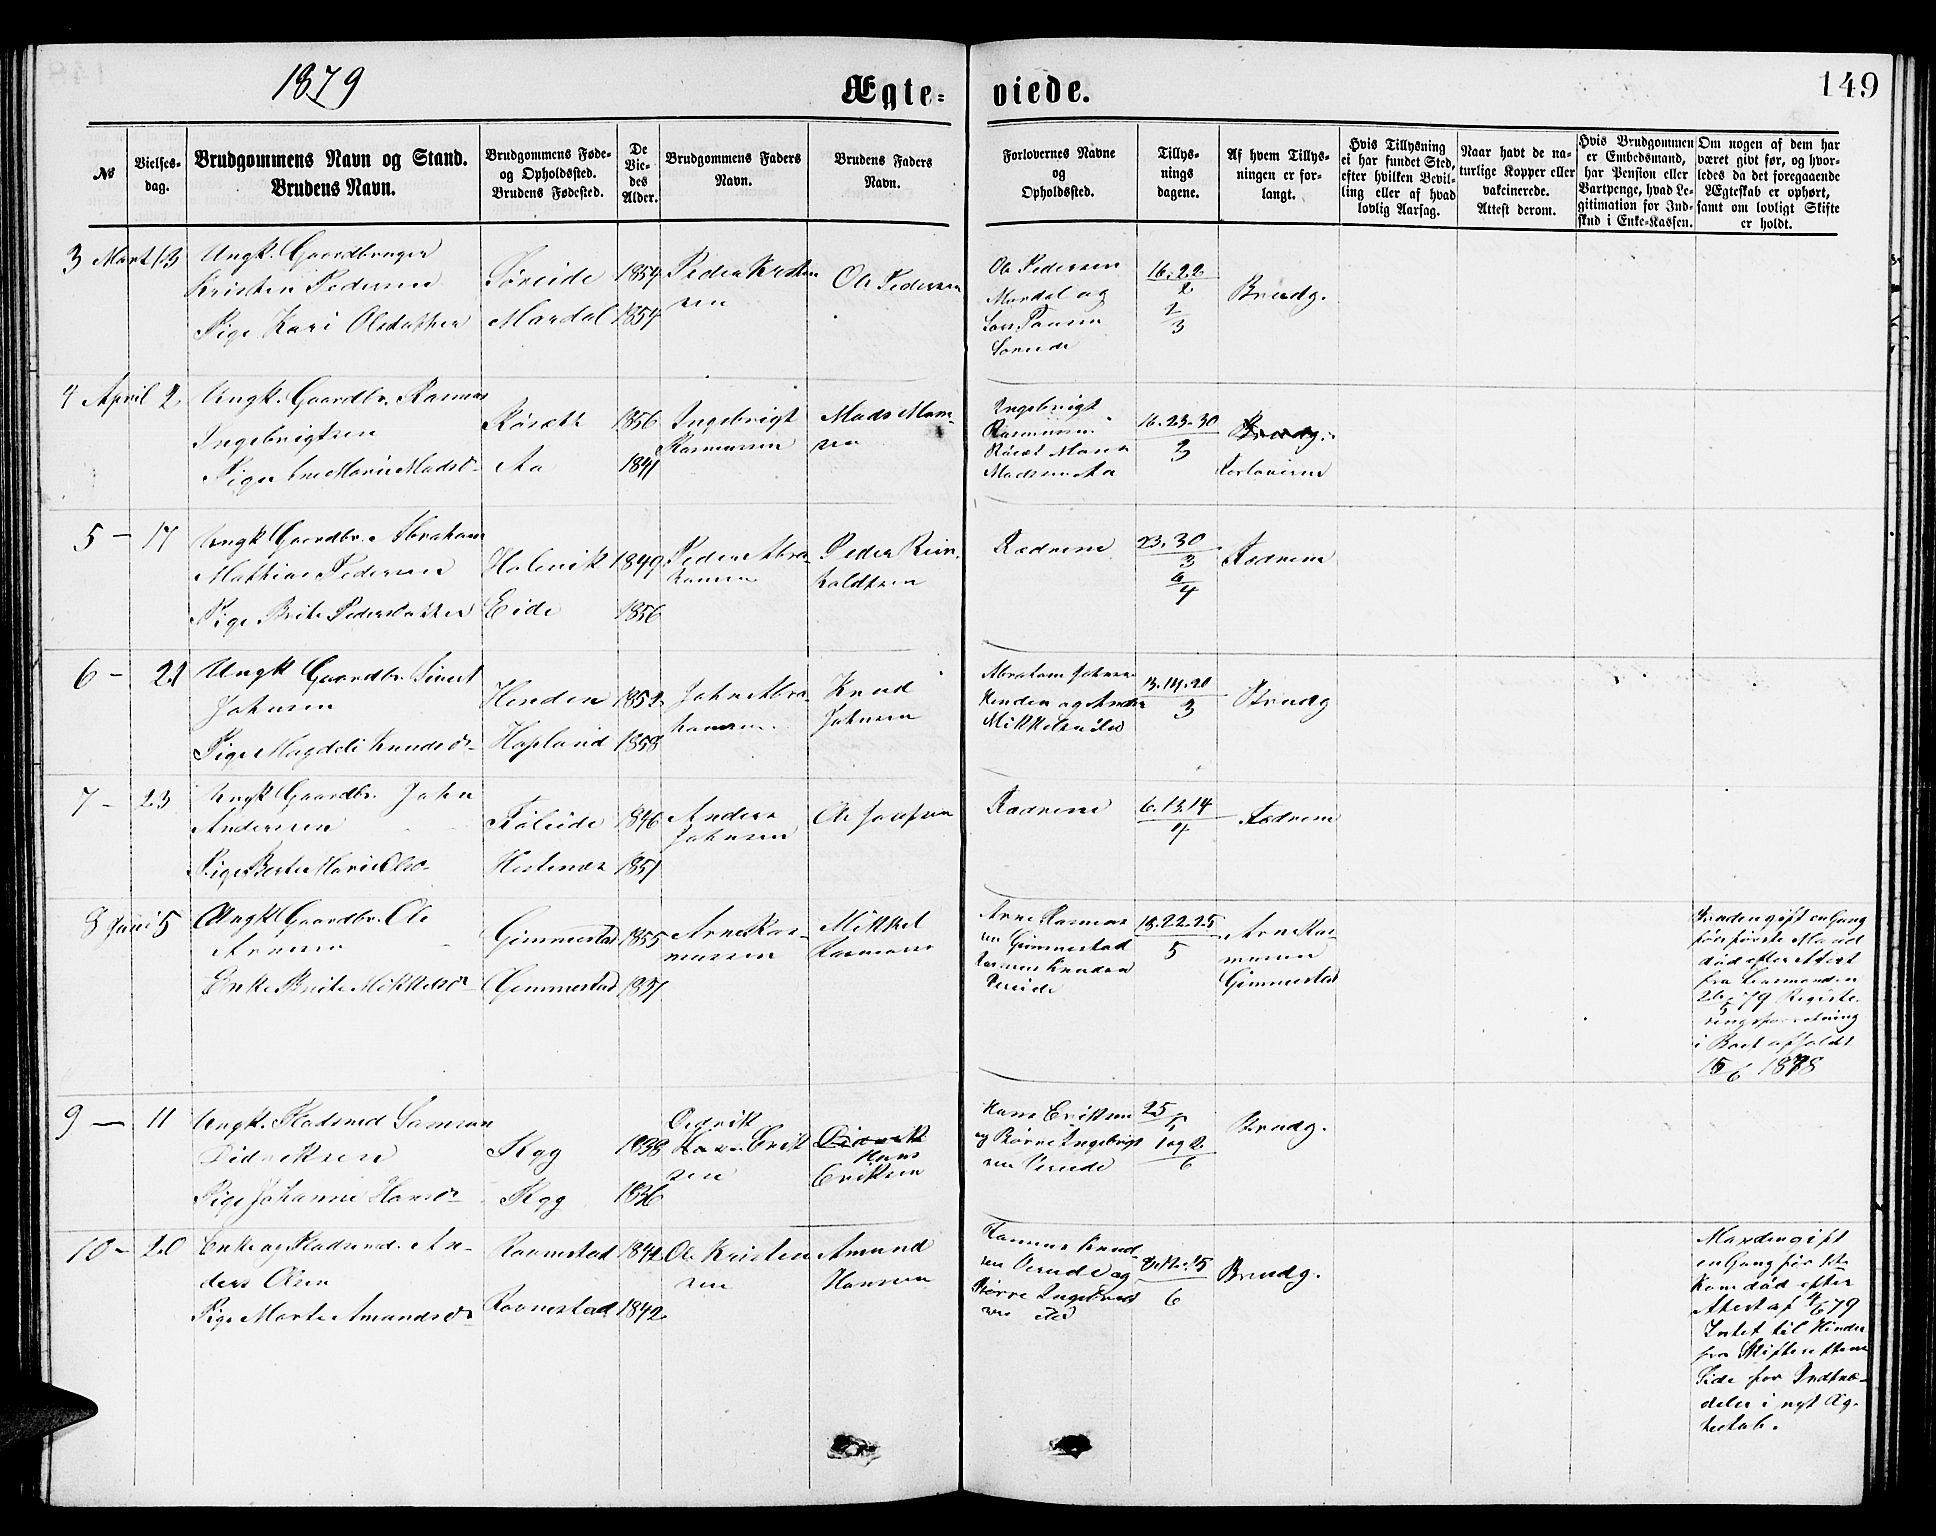 1879
Ægte-
viede.
149
No
Vielses-
dag.
Brudgommens Navn og Stand.
Brudens Navn.
Brudgommens Føde-
og Opholdssted.
Brudens Fødested.
De
Vie-
des
Alder.
Brudgommens Faders
Navn.
Brudens Faders
Navn.
Forlovernes Navne
og
Opholdssted.
Tillys-
nings
dagene.
Af hvem Tillys-
ningen er for-
langt.
Hvis Tillysning
ei har fundet Sted,
efter hvilken Bevil-
ling eller af hvad
lovlig Aarsag.
Naar havt de na-
turlige Kopper eller
vakcinerede.
Attest derom.
Hvis Brudgommen
er Embedsmand,
har Pension eller
Vartpenge, hvad Le-
gitimation for Ind-
skud i Enke-Kassen.
Om nogen af dem har
været givt før, og hvor-
ledes da det foregaaende
Ægteskab er ophørt,
samt om lovligt Skifte
er holdt.
3 Mart 13
Ungk. Gaardbruger
Kristen Pedersen
Pige Kari Olsdatter
Søreide
Mardal
1854
1854
Peder Kristen
sen
Ole Pedersen
Ole Pedersen
Mardal og
16.22
2
2
3
Brudg.
4 April 2
Ungk. Gaardbr. Rasmus
Ingebrigtsen
Pige Ane Marie Madsd.
Røsæt
Aa
1856
1841
Ingebrigt
Rasmussen
Mads Mon-
sen
Ingebrigt
Rasmussen
Røset
Madsen Aa
16.23.30
3
Brudg.
Forloverne
5 — 17
Ungk Gaardbr. Abraham
Mathias Pedersen
Pige Brite Pedersdatter
Holevik
Eide
1849
1856
Peder Abra-
hamsen
Peder Rein-
holdtsen
Fædrene
23.30
3
6
4
Fædrene
6 — 21
Ungk Gaardbr. Sivert
Johnsen
Pige Magdeli Knudsd.
Henden
Hopland
1852
1858
John Abra-
hamsen
Knud
Johnsen
Abraham Johnsen
Henden og Anders
13.14.20
3
Brudg
7 — 23
Ungk Gaardbr. John
Andersen
Pige Berte Marie Olsd.
Føleide
Hestenes
1846
1851
Anders
Johnsen
Ole Josefsen
Fædrene
6.13.14
4
Fædrene
8 Juni 5
Ungk Gaardbr. Ole
Arnesen
Enke Brite Mikkelsd.
Gimmestad
Gimmestad
1855
1831
Arne Ras-
mussen
Mikkel
Rasmussen
Arne Rasmus
sen Gimmestad
Rasmus Knudsen
Vereide
18.22.25
5
Arne Ras-
mussen
Gimmestad
Bruden gift en Gang
før første Mand
død efter Attest
fra Lensmanden
26/5 79 Registe-
ringsforretning
i Boet afholdt
15/6 1878
9 — 11
Ungk. Pladsmd Samson
Didriksen
Pige Johanne Hansd.
Ryg
Ryg
1838
1836
Didrik
Hans Erik
sen
Didrik
Hans
Eriksen
Hans Eriksen
og Børre Ingebrigt
sen Vereide
25
5
1 og 2
6
Brudg.
10 — 20
Enkem. og Pladsmd. An-
ders Olsen
Pige Marte Amundsd.
Ravnestad
Ravnestad
1842
1842
Ole Kristen
sen
Amund
Hansen
Rasmus Knud-
sen Vereide og
Børre Ingebrigt
sen
8.12.15
6
Brudg.
Manden gift
en Gang før 1ste
Kone død efter
Attest af 4/6 79
Intet til Hinder
fra Skifterettens
Side for Indtræ-
delse i nyt Æg-
teskab.